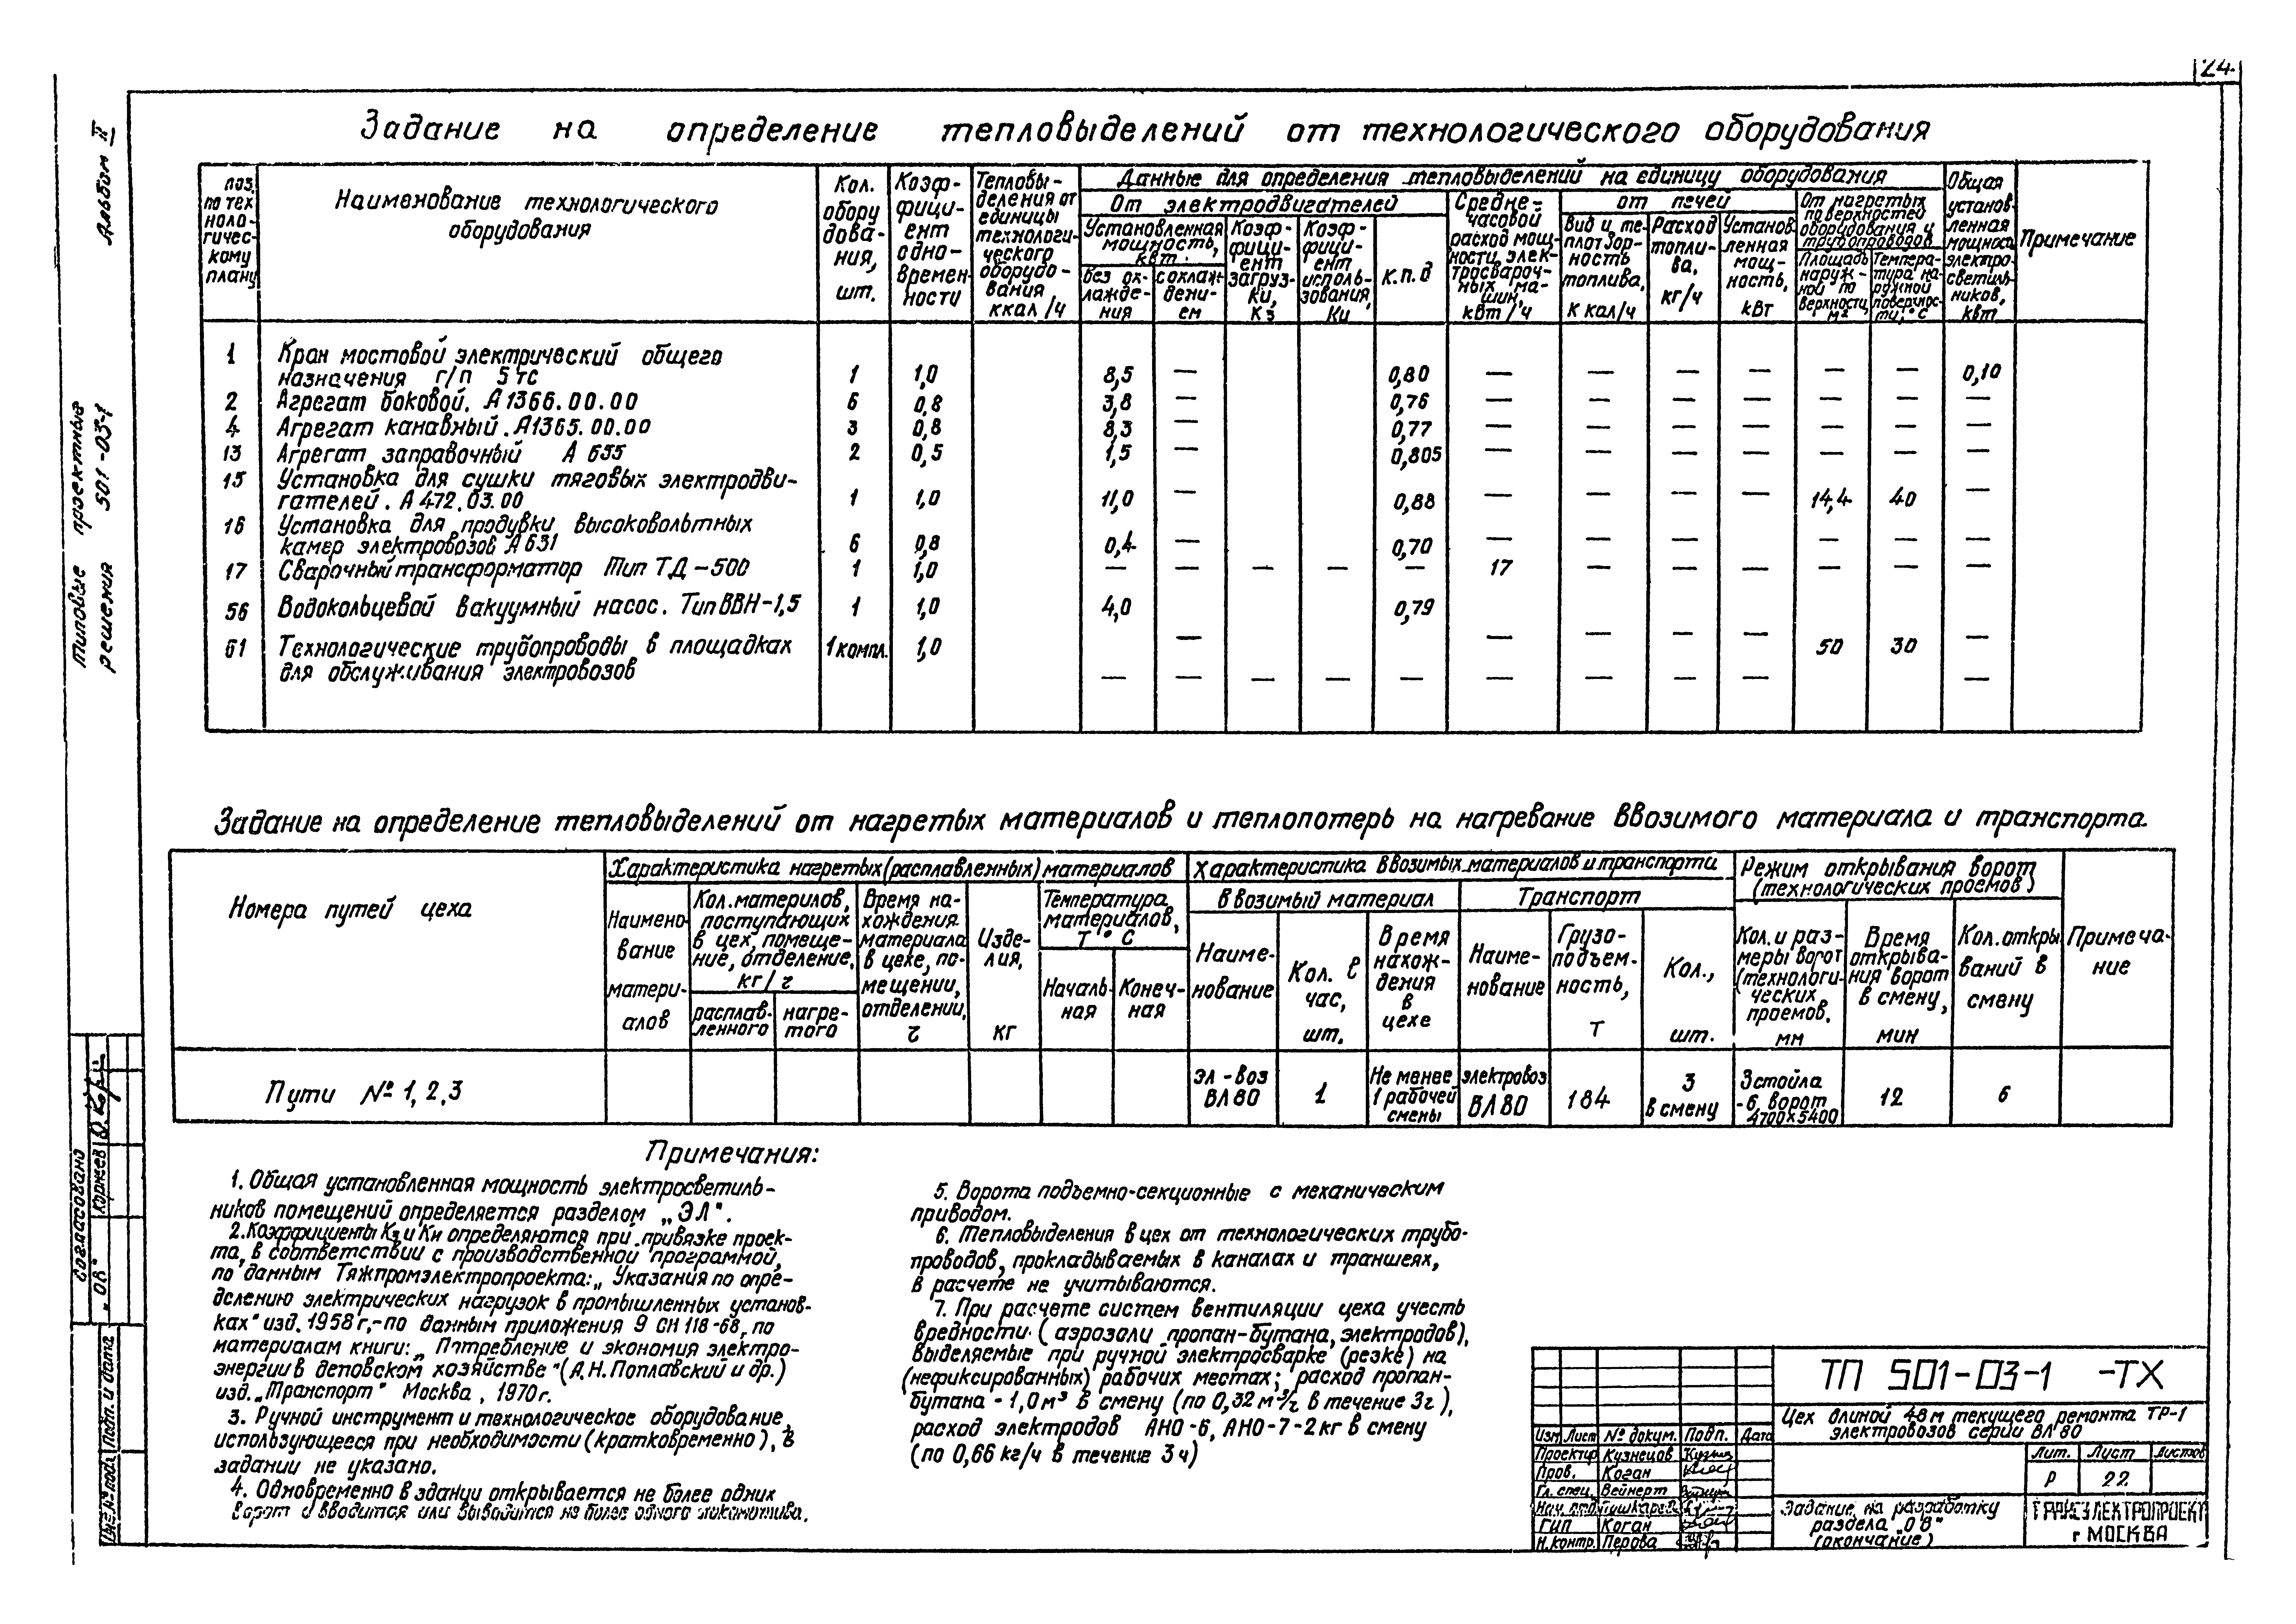 24
Альбом II
Типовые проектные
решения 501-03-1
Задание на определение тепловыделений от технологического оборудования
поз. по тех нологическому плану
Наименование технологического оборудования
Кол. оборудования, шт.
Коэффициент одновременности
Тепловыделения от единицы технологического оборудования ккал/ч
Данные для определения тепловыделений на единицу оборудования
От электродвигателей
Установленная мощность, квт.
без охлаждения
с охлаждением
Коэффициент загрузки, Кз
Коэффициент использования, Ки
к.п.д
Среднечасовой расход мощности электросварочных машин, квт/ч
от печей
Вид и теплотворность топлива, К кал/ч
Расход топлива, кг/ч
Установленная мощность, кВт
От нагретых поверхностей оборудования и трубопроводов
Площадь наружной поверхности, м²
Температура наружной поверхности, °С
Общая установленная мощность электросветильников, квт
Примечание
1 Кран мостовой электрический общего
назначения г/п 5 тс 1 1,0 8,5 — 0,80 — — — — — — 0,10
2 Агрегат боковой. А1366.00.00 6 0,8 3,8 — 0,76 — — — — — — —
4 Агрегат канавный. А1365.00.00 3 0,8 8,3 — 0,77 — — — — — — —
13 Агрегат заправочный А 655 2 0,5 1,5 — 0,805 — — — — — — —
15 Установка для сушки тяговых электродви-
гателей. А 472.03.00 1 1,0 11,0 — 0,88 — — — — 14,4 40 —
16 Установка для продувки высоковольтных
камер электровозов А 631 6 0,8 0,4 — 0,70 — — — — — — —
17 Сварочный трансформатор Тип ТД-500 1 1,0 — — — — — 17 — — — — — —
56 Водокольцевой вакуумный насос. Тип ВВН-1,5 1 1,0 4,0 0,79
61 Технологические трубопроводы в площадках 1 компл. 1,0 — — — — — 50 30 —
для обслуживания электровозов
— — — — — — — — — —
Задание на определение тепловыделений от нагретых материалов и теплопотерь на нагревание ввозимого материала и транспорта.
Номера путей цеха
Характеристика нагретых (расплавленных) материалов
Наименование материалов
Кол. материлов, поступающих в цех, помещение, отделение, кг/г
расплавленного
нагретого
Время нахождения материала в цехе, помещении, отделении, г
Изделия, кг
Температура материалов, Т°С
Начальная
Конечная
Характеристика ввозимых материалов и транспорти
Ввозимый материал
Наименование
Кол. в час, шт.
Время нахождения в цехе
Транспорт
Наименование
Грузоподъемность, Т
Кол., шт.
Режим открывания ворот (технологических проемов)
Кол. и размеры ворот (технологических проемов, мм
Время открывания ворот в смену, мин
Кол. открываний в смену
Примечание
Пути № 1, 2, 3
Эл-воз ВЛ80
1
Не менее 1 рабочей смены
электровоз ВЛ80
184
3 в смену
3 стойла - 6 ворот 4700×5400
12
6
Примечания:
1. Общая установленная мощность электросветиль-
ников помещений определяется разделом „ЭЛ".
2. Коэффициенты Кз и Ки определяются при привязке проек-
та, в соответствии с производственной программой,
по данным Тяжпромэлектропроекта: „Указания по опре-
делению электрических нагрузок в промышленных установ-
ках" изд. 1958 г, - по данным приложения 9 СН 118-68, по
материалам книги: „Потребление и экономия электро-
энергии в деповском хозяйстве" (А.Н. Поплавский и др.)
изд. „Транспорт" Москва, 1970г.
3. Ручной инструмент и технологическое оборудование,
использующееся при необходимости (кратковременно), в
задании не указано.
4. Одновременно в здании открывается не более одних
ворот и вводится или выводится не более одного локомотива.
5. Ворота подъемно-секционные с механическим
приводом.
6. Тепловыделения в цех от технологических трубо-
проводов, прокладываемых в каналах и траншеях,
в расчете не учитываются.
7. При расчете систем вентиляции цеха учесть
вредности (аэрозоли пропан-бутана, электродов),
выделяемые при ручной электросварке (резке) на
(нефиксированных) рабочих местах; расход пропан-
бутана - 1,0 м³ в смену (по 0,32 м³/г в течение 3г),
расход электродов АНО-6, АНО-7-2кг в смену
(по 0,66 кг/ч в течение 3 ч)
согласовано
„ОВ" Коржев
Подп. и дата
Инв. № подл.
ТП 501-03-1 -ТХ
Цех длиной 48 м текущего ремонта ТР-1
электровозов серии ВЛ 80
Изм Лист № докум. Подп. Дата
Проектир Кузнецов
Пров. Коган
Гл. спец. Вейнерт
Нач. отд.
ГИП Коган
Н.контр. Перова
Лит. Лист Листов
Р 22
Задание на разработку
раздела „ОВ"
(окончание)
ТРАНСЭЛЕКТРОПРОЕКТ
г МОСКВА